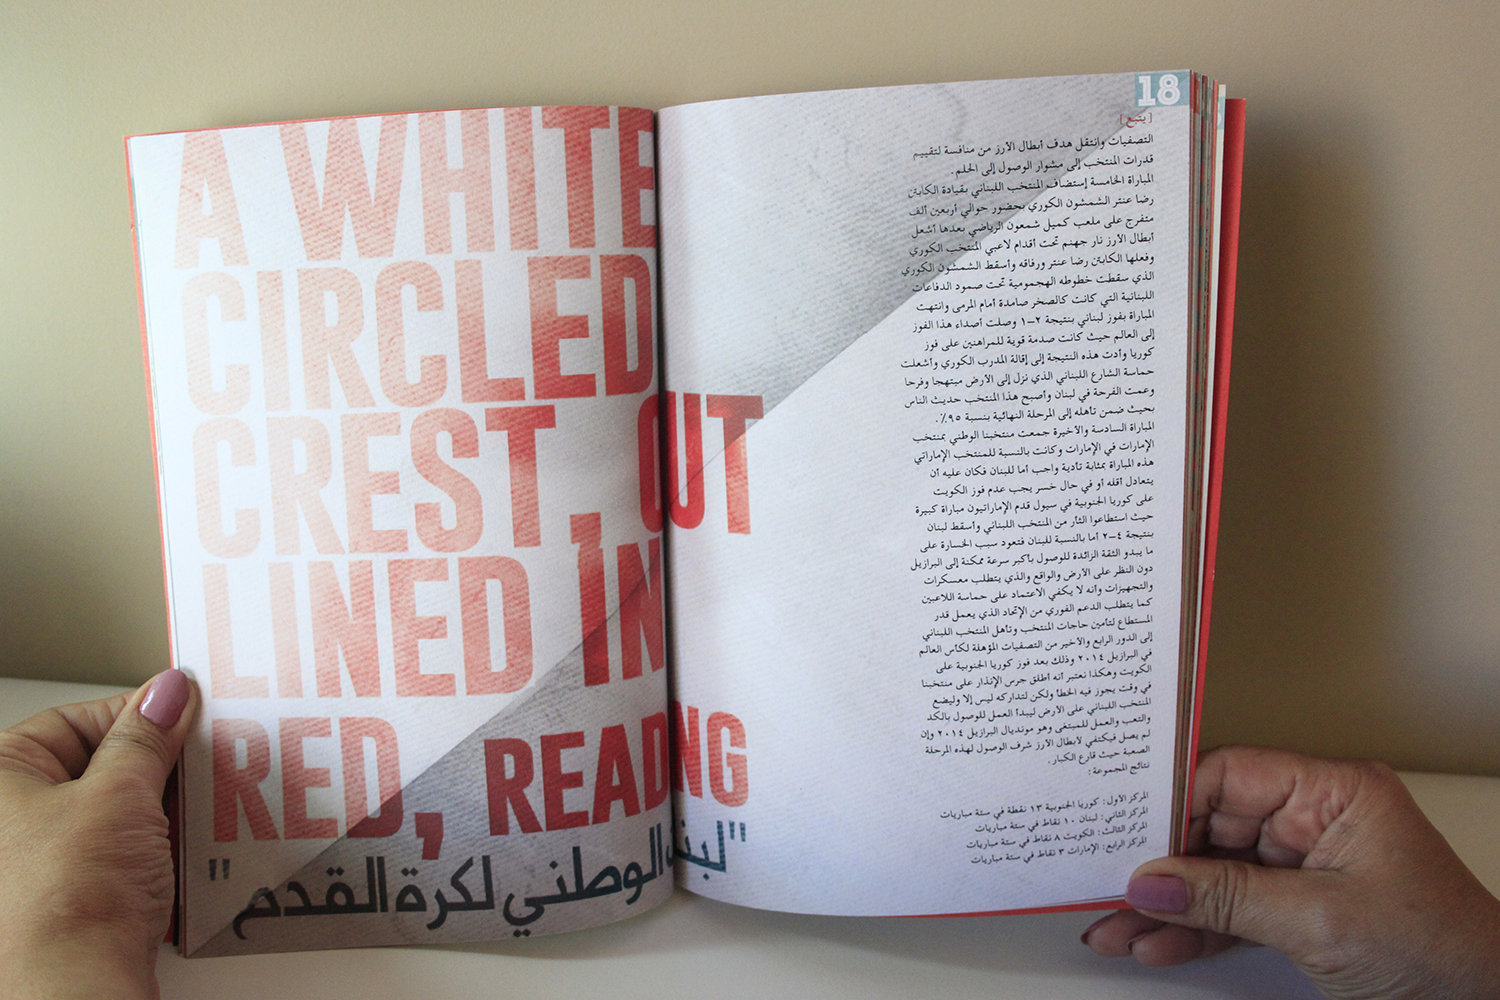 A WHITE
CIRCLED
CREST, OUT
LINED IN
RED, READING
"لبنان الوطني لكرة القدم"
18
[يتبع]
التصفيات وانتقل هدف أبطال الأرز من منافسة لتقييم
قدرات المنتخب إلى مشوار الوصول إلى الحلم.
المباراة الخامسة إستضاف المنتخب اللبناني بقيادة الكابتن
رضا عنتر الشمشون الكوري بحضور حوالي أربعين ألف
متفرج على ملعب كميل شمعون الرياضي بعدها أشعل
أبطال الأرز نار جهنم تحت أقدام لاعبي المنتخب الكوري
وفعلها الكابتن رضا عنتر ورفاقه وأسقط الشمشون الكوري
الذي سقطت خطوطه الهجمومية تحت صمود الدفاعات
اللبنانية التي كانت كالصخر صامدة أمام المرمى وانتهت
المباراة بفوز لبناني بنتيجة ٢–١ وصلت أصداء هذا الفوز
إلى العالم حيث كانت صدمة قوية للمراهنين على فوز
كوريا وأدت هذه النتيجة إلى إقالة المدرب الكوري وأشعلت
حماسة الشارع اللبناني الذي نزل إلى الأرض مبتهجا وفرحا
وعمت الفرحة في لبنان وأصبح هذا المنتخب حديث الناس
بحيث ضمن تأهله إلى المرحلة النهائية بنسبة ٩٥٪.
المباراة السادسة والأخيرة جمعت منتخبنا الوطني بمنتخب
الإمارات في الإمارات وكانت بالنسبة للمنتخب الإماراتي
هذه المباراة بمثابة تأدية واجب أما للبنان فكان عليه أن
يتعادل أقله أو في حال خسر يجب عدم فوز الكويت
على كوريا الجنوبية في سيول قدم الإماراتيون مباراة كبيرة
حيث استطاعوا الثأر من المنتخب اللبناني وأسقط لبنان
بنتيجة ٤–٢ أما بالنسبة للبنان فتعود سبب الخسارة على
ما يبدو الثقة الزائدة للوصول بأكبر سرعة ممكنة إلى البرازيل
دون النظر على الأرض والواقع والذي يتطلب معسكرات
والتجهيزات وأنه لا يكفي الاعتماد على حماسة اللاعبين
كما يتطلب الدعم الفوري من الإتحاد الذي يعمل قدر
المستطاع لتأمين حاجات المنتخب وتأهل المنتخب اللبناني
إلى الدور الرابع والأخير من التصفيات المؤهلة لكأس العالم
في البرازيل ٢٠١٤ وذلك بعد فوز كوريا الجنوبية على
الكويت وهكذا نعتبر أنه أطلق جرس الإنذار على منتخبنا
في وقت يجوز فيه الخطأ ولكن لتداركه ليس إلا وليضع
المنتخب اللبناني على الأرض ليبدأ العمل للوصول بالكد
والتعب والعمل للمبتغى وهو مونديال البرازيل ٢٠١٤ وإن
لم يصل فيكتفي لأبطال الأرز شرف الوصول لهذه المرحلة
الصعبة حيث قارع الكبار.
نتائج المجموعة:
المركز الأول: كوريا الجنوبية ١٣ نقطة في ستة مباريات
المركز الثاني: لبنان ١٠ نقاط في ستة مباريات
المركز الثالث: الكويت ٨ نقاط في ستة مباريات
المركز الرابع: الإمارات ٣ نقاط في ستة مباريات